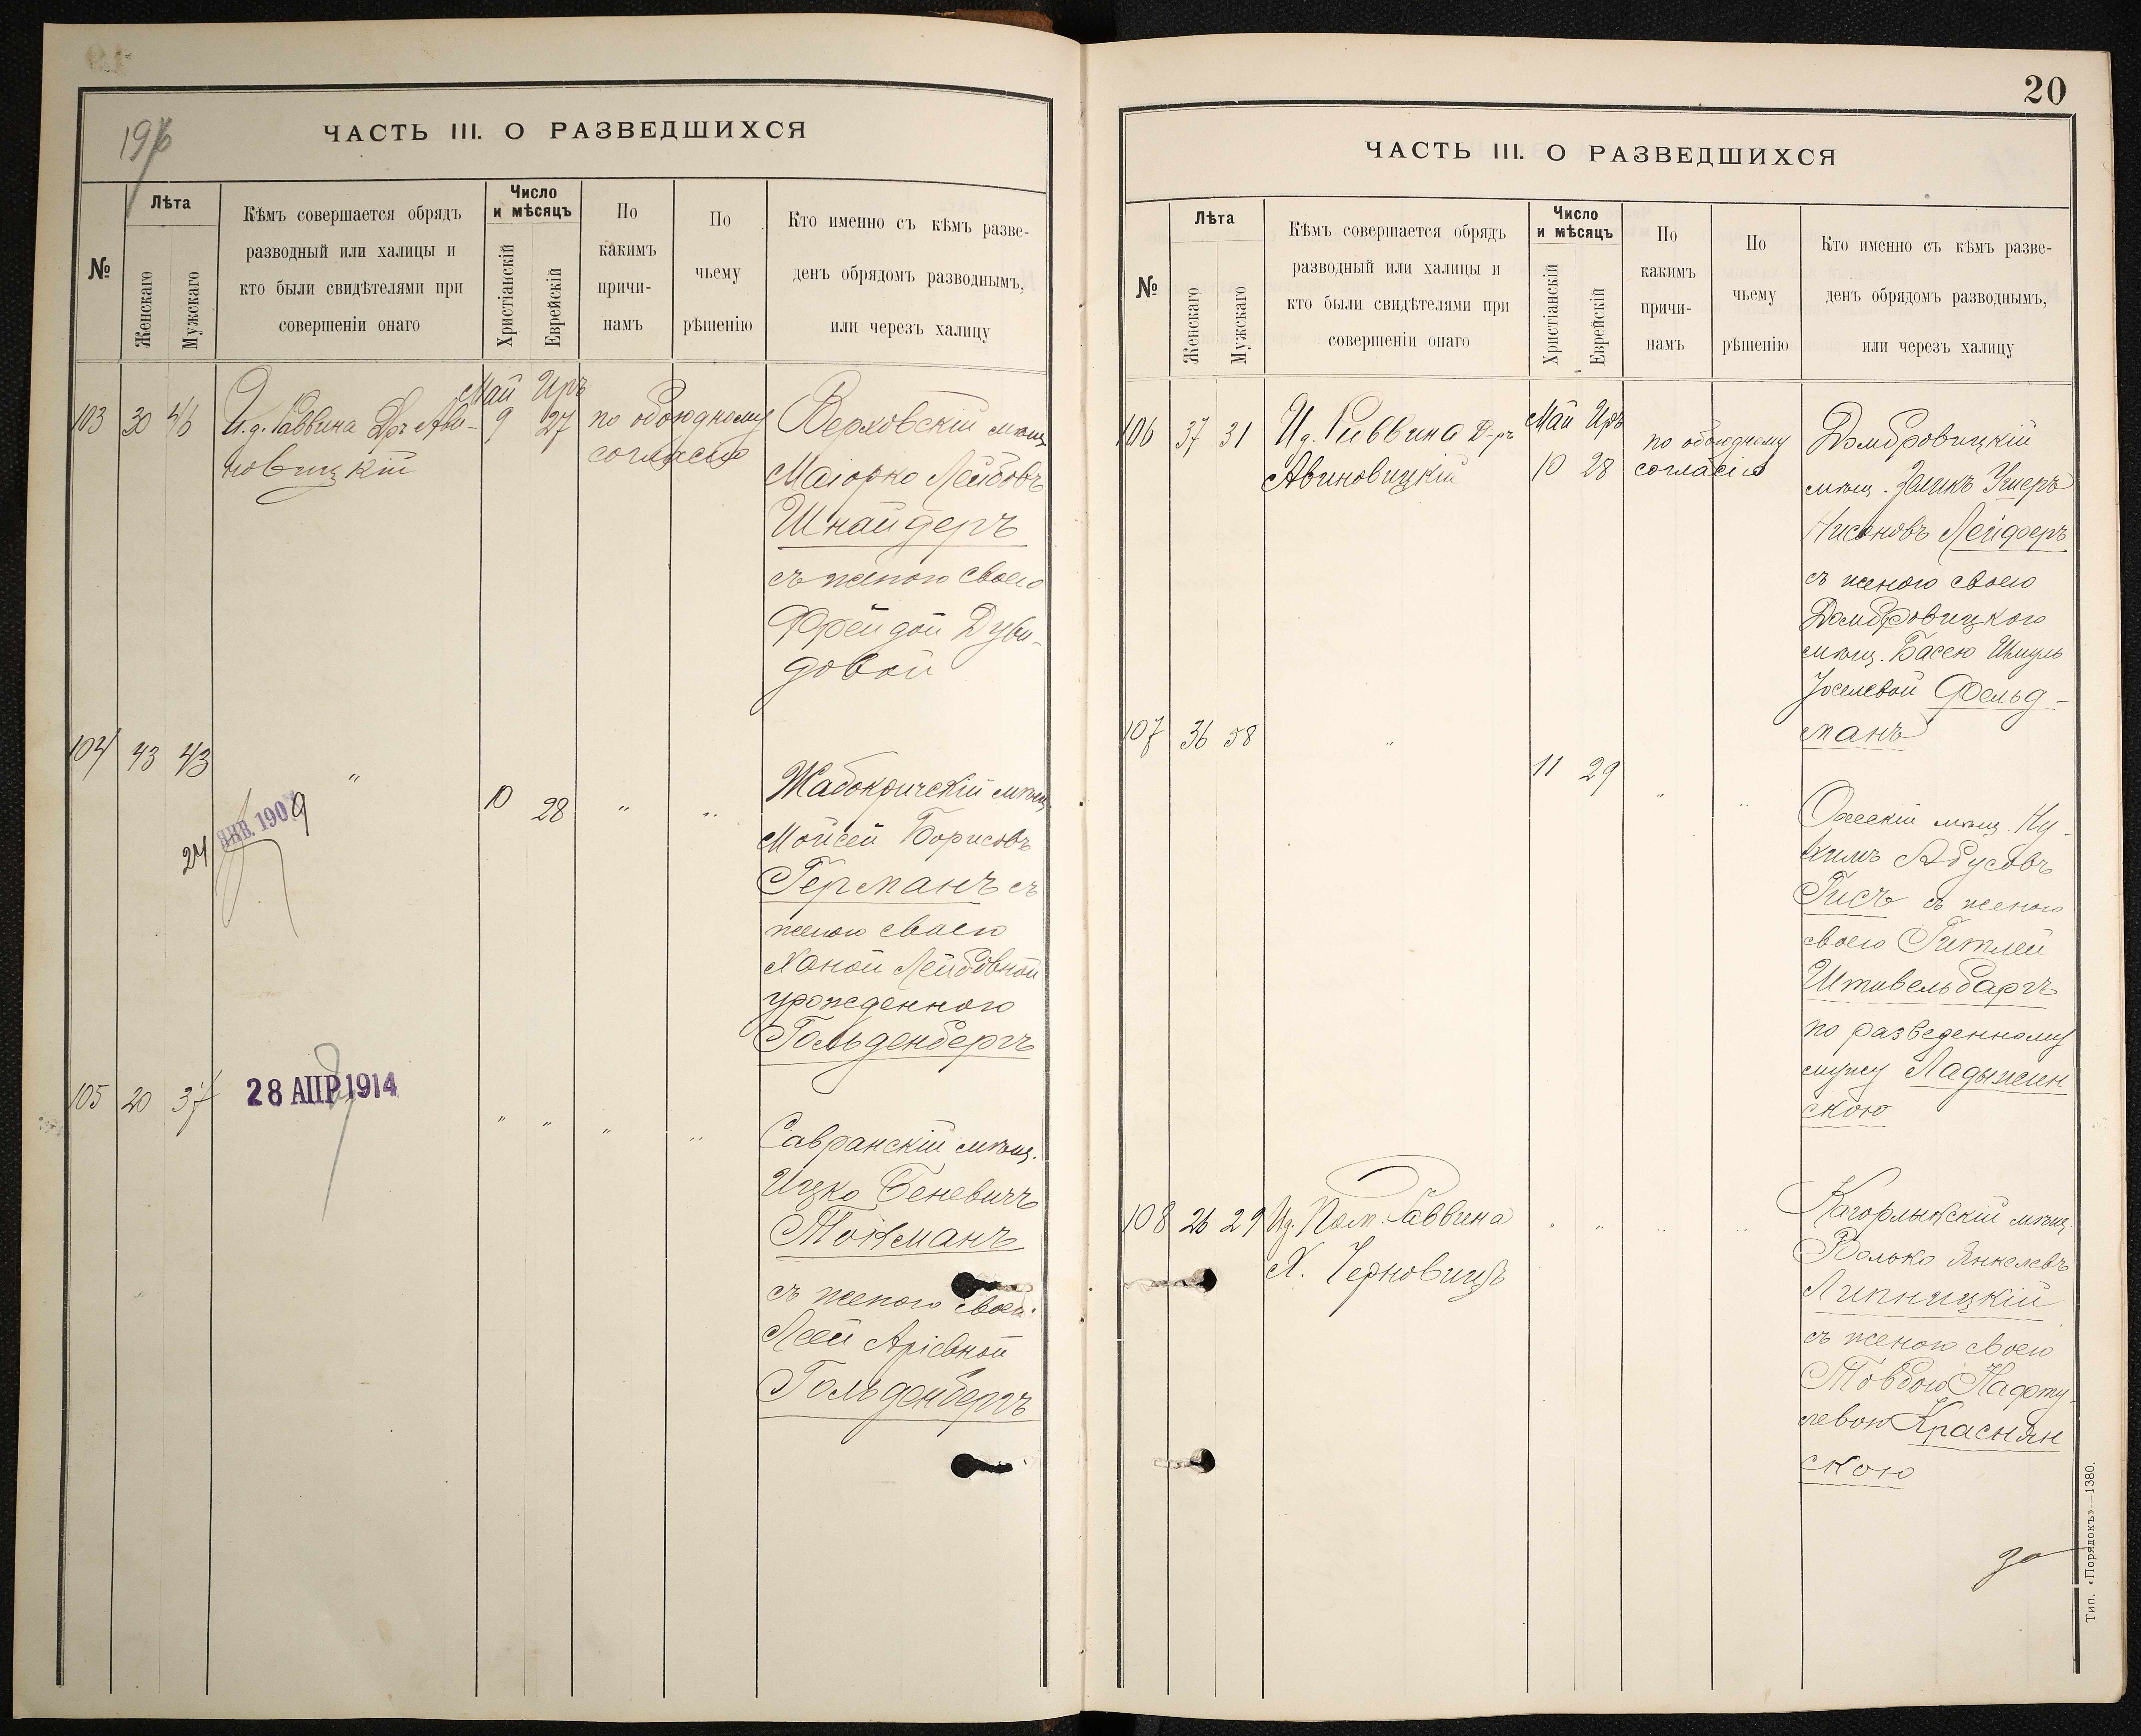 ЧАСТЬ III. О РАЗВЕДШИХСЯ
№
Лѣта
Женскаго
Мужскаго
Кѣмъ совершается обрядъ
разводный или халицы и
кто были свидѣтелями при
совершеніи онаго
Число
и мѣсяцъ
Христіанскій
Еврейскій
По
какимъ
причи-
намъ
По
чьему
рѣшенію
Кто именно съ кѣмъ разве-
денъ обрядомъ разводнымъ,
или черезъ халицу
103 30 46
И.д. Раввина Д-ръ Ави-
новицкій
Май Иръ
9 27
по обоюдному
согласію
Верховскій мѣщ.
Маіорко Лейбовъ
Шнайдеръ
съ женою своею
Фрейдой Дуви-
довой
104 43 43
"
10 28 " "
24 ЯНВ. 1909
Жабокричскій мѣщ.
Мойсей Борисовъ
Германъ съ
женою своею
Ханой Лейбовной
урожденною
Гольденбергъ
105 20 37
28 АПР 1914
" " " "
Савранскій мѣщ.
Ицко Беневичъ
Токманъ
съ женою своей
Леей Аріевной
Гольденбергъ
20
ЧАСТЬ III. О РАЗВЕДШИХСЯ
№
Лѣта
Женскаго
Мужскаго
Кѣмъ совершается обрядъ
разводный или халицы и
кто были свидѣтелями при
совершеніи онаго
Число
и мѣсяцъ
Христіанскій
Еврейскій
По
какимъ
причи-
намъ
По
чьему
рѣшенію
Кто именно съ кѣмъ разве-
денъ обрядомъ разводнымъ,
или черезъ халицу
106 37 31
И.д. Раввина Д-ръ
Авиновицкій
Май Иръ
10 28
по обоюдному
согласію
Домбровицкій
мѣщ. Зеликъ Ушеръ
Нисоновъ Лейферъ
съ женою своею
Домбровицкою
мѣщ. Басею Шмуль
Іоселевой Фельд-
манъ
107 36 58
"
11 29 " "
Одесскій мѣщ. Ну-
химъ Абусовъ
Гисъ съ женою
своею Гитлей
Штивельбаргъ
по разведенному
мужу Ладыжин
скою
108 26 29
И.д. Пом. Раввина
Х. Черновицъ
" " " "
Кагорлыкскій мѣщ.
Волько Янкелевъ
Липницкій
съ женою своею
Товбою Нафту
левою Краснян
скою
Тип. «Порядокъ»—1380.